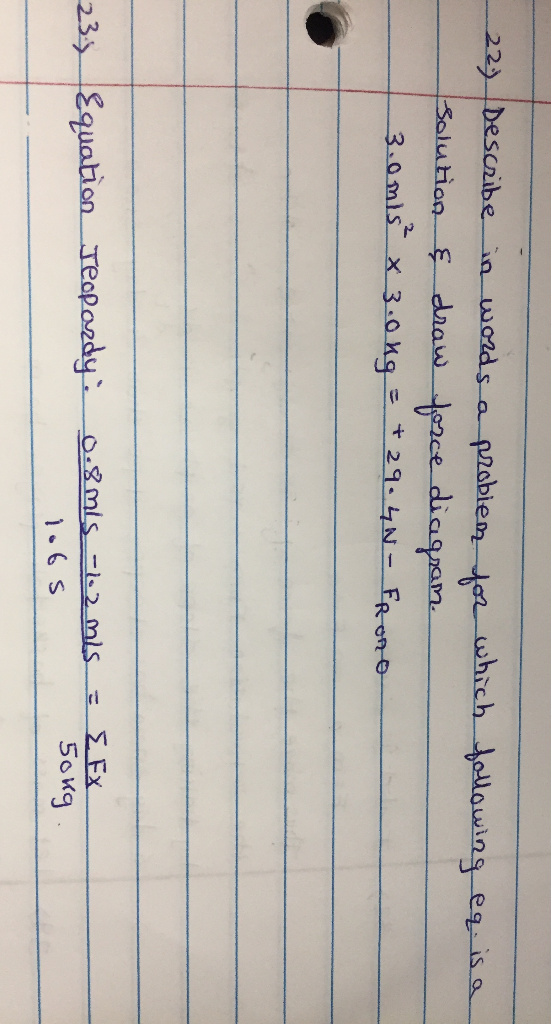 22.) Describe in words a problem for which following eq. is a
solution & draw force diagram.
3.0 m/s² x 3.0 kg = + 29.4 N - F R on O
23.) Equation Jeopardy: 0.8 m/s - 1.2 m/s = Σ Fx
1.6 s 50 kg.